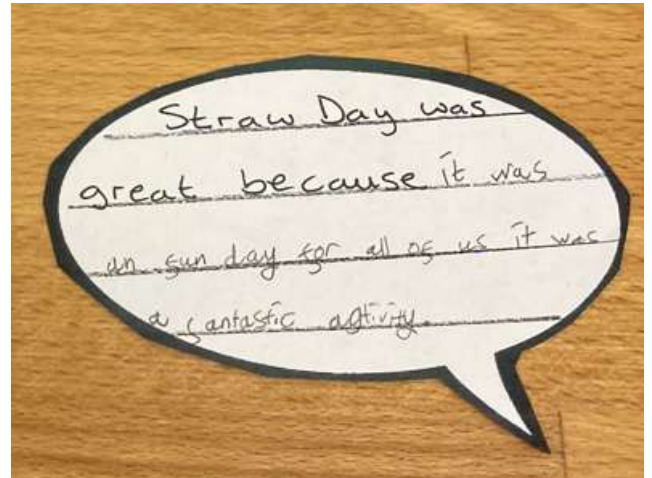 Straw Day was
great because it was
an fun day for all of us it was
a fantastic agtivity